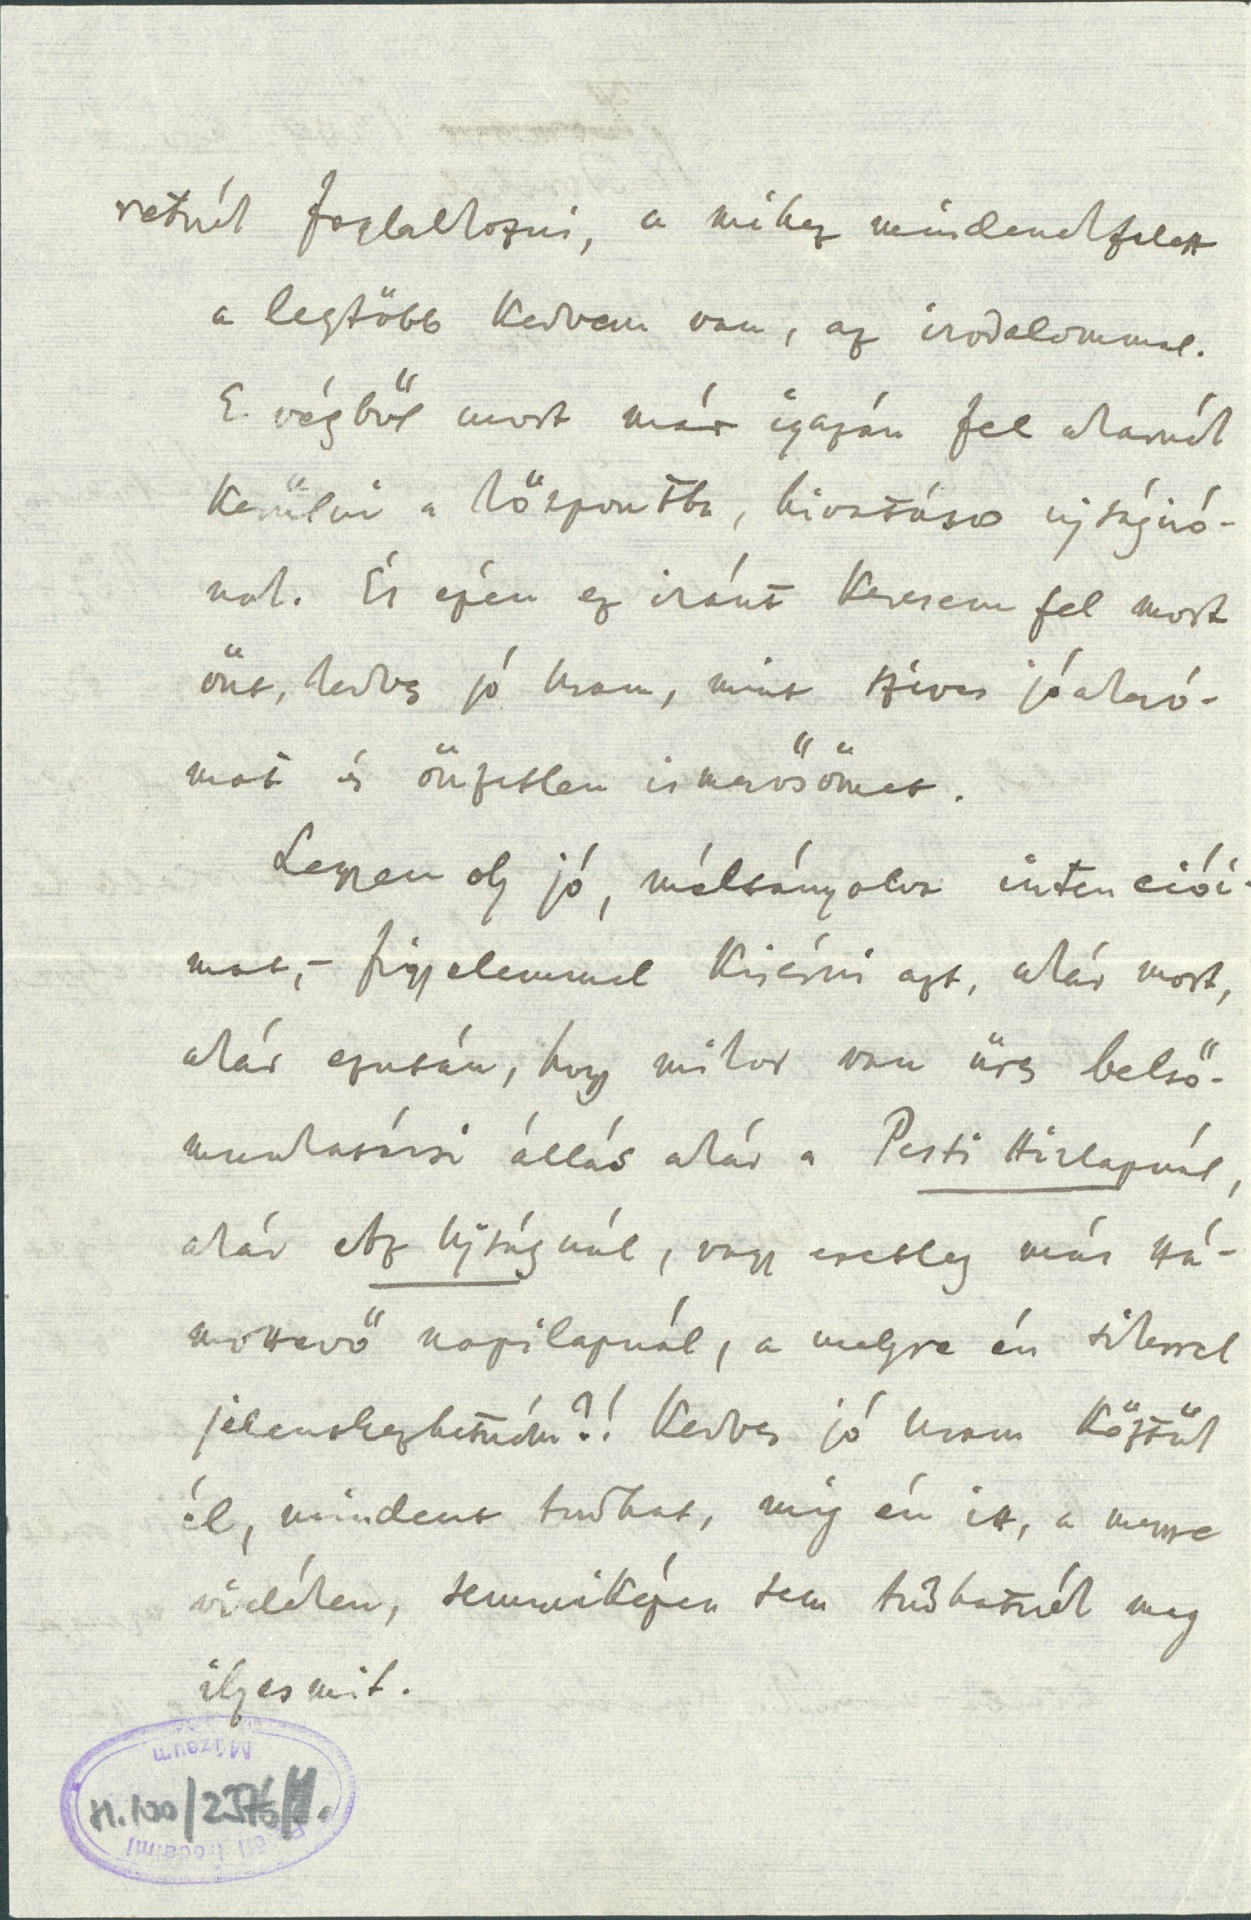 retnék foglalkozni, a mihez mindenekfelett
a legtöbb kedvem van, az irodalommal.
E végből most már igazán fel akarnék
kerülni a központba, hivatásos ujságiró-
nak. És épen ez iránt keresem fel most
önt, kedves jó Uram, mint szíves jóakaró-
mat és önzetlen ismerősömet.
Legyen oly jó, méltányolva intenciói-
mat, - figyelemmel kisérni azt, akár most,
akár ezután, hogy mikor van üres belső-
munkatársi állás akár a Pesti Hirlapnál,
akár Az Ujságnál, vagy esetleg más szá-
mottevő napilapnál, a melyre én sikerrel
jelentkezhetném?! Kedves jó Uram köztük
él, mindent tudhat, mig én itt, a messze
vidéken, semmiképen sem tudhatnék meg
ilyesmit.
Petőfi Irodalmi
Múzeum